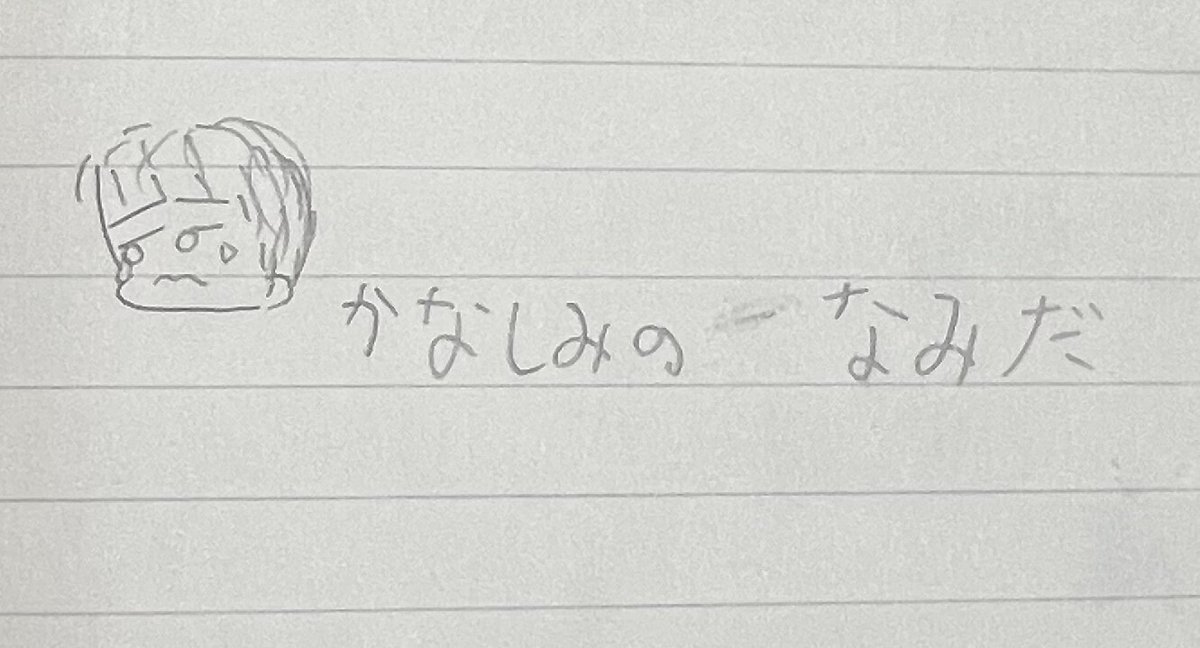 かなしみの なみだ